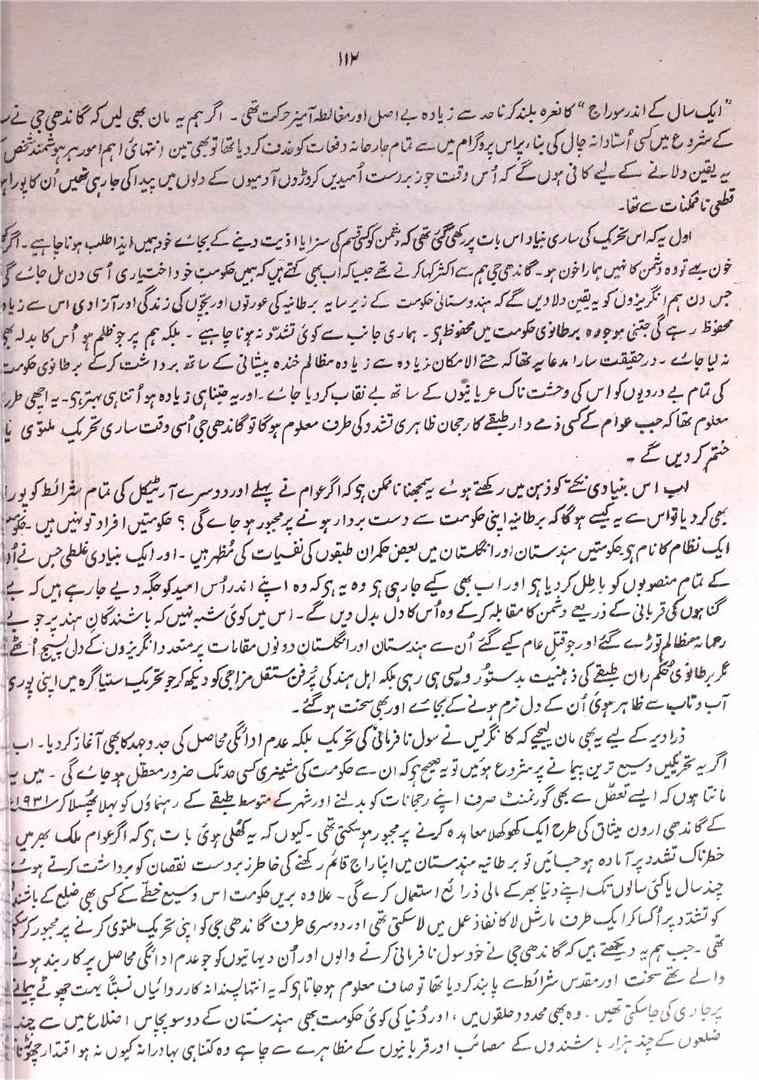 ۱۱۲
”ایک سال کے اندر سوراج“ کا نعرہ بلند کرنا حد سے زیادہ بے اصل اور مغالطہ آمیز حرکت تھی ۔ اگر ہم یہ مان بھی لیں کہ گاندھی جی نے
کے شروع میں کسی اُستادانہ چال کی بناء پر اس پروگرام میں سے تمام جارحانہ دفعات کو حذف کر دیا تھا تو بھی تین انتہائی اہم امور ہر ہوشمند شخص کو
یہ یقین دلانے کے لیے کافی ہوں گے کہ اُس وقت جو زبردست اُمیدیں کروڑوں آدمیوں کے دلوں میں پیدا کی جا رہی تھیں اُن کا پورا
قطعی ناممکنات سے تھا۔
اول یہ کہ اس تحریک کی ساری بنیاد اس بات پر رکھی گئی تھی کہ دشمن کو کسی قسم کی سزا یا اذیت دینے کے بجائے خود ہمیں ایذا طلب ہونا چاہیے ۔ اگر
خون بہے تو وہ دشمن کا نہیں ہمارا خون ہو ۔ گاندھی جی ہم سے اکثر کہا کرتے تھے جیسا کہ اب بھی کہتے ہیں کہ ہمیں حکومتِ خود اختیاری اُسی دن مل جائے گی
جس دن ہم انگریزوں کو یہ یقین دلا دیں گے کہ ہندوستانی حکومت کے زیر سایہ برطانیہ کی عورتوں اور بچوں کی زندگی اور آزادی اس سے زیادہ
محفوظ رہے گی جتنی موجودہ برطانوی حکومت میں محفوظ ہی۔ ہماری جانب سے کوئی تشدد نہ ہونا چاہیے ۔ بلکہ ہم پر جو ظلم ہو اُس کا بدلہ بھی
نہ لیا جائے ۔ درحقیقت سارا مدعا یہ تھا کہ حتے الامکان زیادہ سے زیادہ مظالم خندہ پیشانی کے ساتھ برداشت کر کے برطانوی حکومت
کی تمام بے دردیوں کو اس کی وحشت ناک عریانیوں کے ساتھ بے نقاب کر دیا جائے ۔ اور یہ جتنا ہی زیادہ ہو اُتنا ہی بہتر ہی۔ یہ اچھی طرح
معلوم تھا کہ جب عوام کے کسی ذمے دار طبقے کا رجحان ظاہری تشدد کی طرف معلوم ہوگا تو گاندھی جی اُسی وقت ساری تحریک ملتوی یا
ختم کر دیں گے ۔
اب اس بنیادی نکتے کو ذہن میں رکھتے ہوئے یہ سمجھنا ناممکن ہی کہ اگر عوام نے پہلے اور دوسرے آرٹیکل کی تمام شرائط کو پورا
بھی کر دیا تو اس سے یہ کیسے ہوگا کہ برطانیہ اپنی حکومت سے دست بردار ہونے پر مجبور ہو جائے گی ؟ حکومتیں افراد تو نہیں ہیں ۔
ایک نظام کا نام ہی حکومتیں ہندستان اور انگلستان میں بعض حکمران طبقوں کی نفسیات کی مُظہر ہیں ۔ اور ایک بنیادی غلطی جس نے
کے تمام منصوبوں کو باطل کر دیا ہی اور اب بھی کیے جا رہی ہی وہ یہ ہی کہ وہ اپنے اندر اُس امید کو جگہ دیے جا رہے ہیں کہ بے
گناہوں کی قربانی کے ذریعے دشمن کا مقابلہ کر کے وہ اُس کا دل بدل دیں گے ۔ اس میں کوئی شبہ نہیں کہ باشندگانِ ہند پر جو بے
رحمانہ مظالم توڑے گئے اور جو قتل عام کیے گئے اُن سے ہندستان اور انگلستان دونوں مقامات پر متعدد انگریزوں کے دل پسیج اُٹھے
مگر برطانوی حکمران طبقے کی ذہنیت بدستور ویسی ہی رہی بلکہ اہل ہند کی پُرفن مستقل مزاجی کو دیکھ کر جو تحریک ستیاگرہ میں اپنی پوری
آب و تاب سے ظاہر ہوئی اُن کے دل نرم ہونے کے بجائے اور بھی سخت ہو گئے۔
ذرا دیر کے لیے یہ بھی مان لیجیے کہ کانگریس نے سول نافرمانی کی تحریک بلکہ عدم ادائگی محاصل کی جدوجہد کا بھی آغاز کر دیا ۔ اب
اگر یہ تحریکیں وسیع ترین پیمانے پر شروع ہوئیں تو یہ صحیح ہی کہ ان سے حکومت کی مشینری کسی حد تک ضرور معطل ہو جائے گی ۔ میں یہ
مانتا ہوں کہ ایسے تعطل سے بھی گورنمنٹ صرف اپنے رجحانات کو بدلنے اور شہر کے متوسط طبقے کے رہنماؤں کو بہلا پھسلا کر ۱۹۳۱ء
کے گاندھی ارون میثاق کی طرح ایک کھوکھلا معاہدہ کرنے پر مجبور ہو سکتی تھی ۔ کیوں کہ یہ کھلی ہوئی بات ہی کہ اگر عوام ملک بھر میں
خطرناک تشدد پر آمادہ ہو جائیں تو برطانیہ ہندستان میں اپنا راج قائم رکھنے کی خاطر زبردست نقصان کو برداشت کرتے ہوئے
چند سال یا کئی سالوں تک اپنے دنیا بھر کے مالی ذرائع استعمال کرے گی ۔ علاوہ بریں حکومت اس وسیع خطے کے کسی بھی ضلع کے
کو تشدد پر اُکسا کر ایک طرف مارشل لا کا نفاذ عمل میں لا سکتی تھی اور دوسری طرف گاندھی جی کو اپنی تحریک ملتوی کرنے پر مجبور کر سکتی
تھی ۔ جب ہم یہ دیکھتے ہیں کہ گاندھی جی نے خود سول نافرمانی کرنے والوں اور اُن دیہاتیوں کو جو عدم ادائگی محاصل پر کاربند ہونے
والے تھے سخت اور مقدس شرائط سے پابند کر دیا تھا تو صاف معلوم ہو جاتا ہی کہ یہ انتہا پسندانہ کارروائیاں نسبتاً بہت چھوٹے پیمانے
پر جاری کی جا سکتی تھیں ۔ وہ بھی محدود حلقوں میں ، اور دُنیا کی کوئی حکومت بھی ہندستان کے دو سو پچاس اضلاع میں سے چند
ضلعوں کے چند ہزار باشندوں کے مصائب اور قربانیوں کے مظاہرے سے چاہے وہ کتنا ہی بہادرانہ کیوں نہ ہو اقتدار